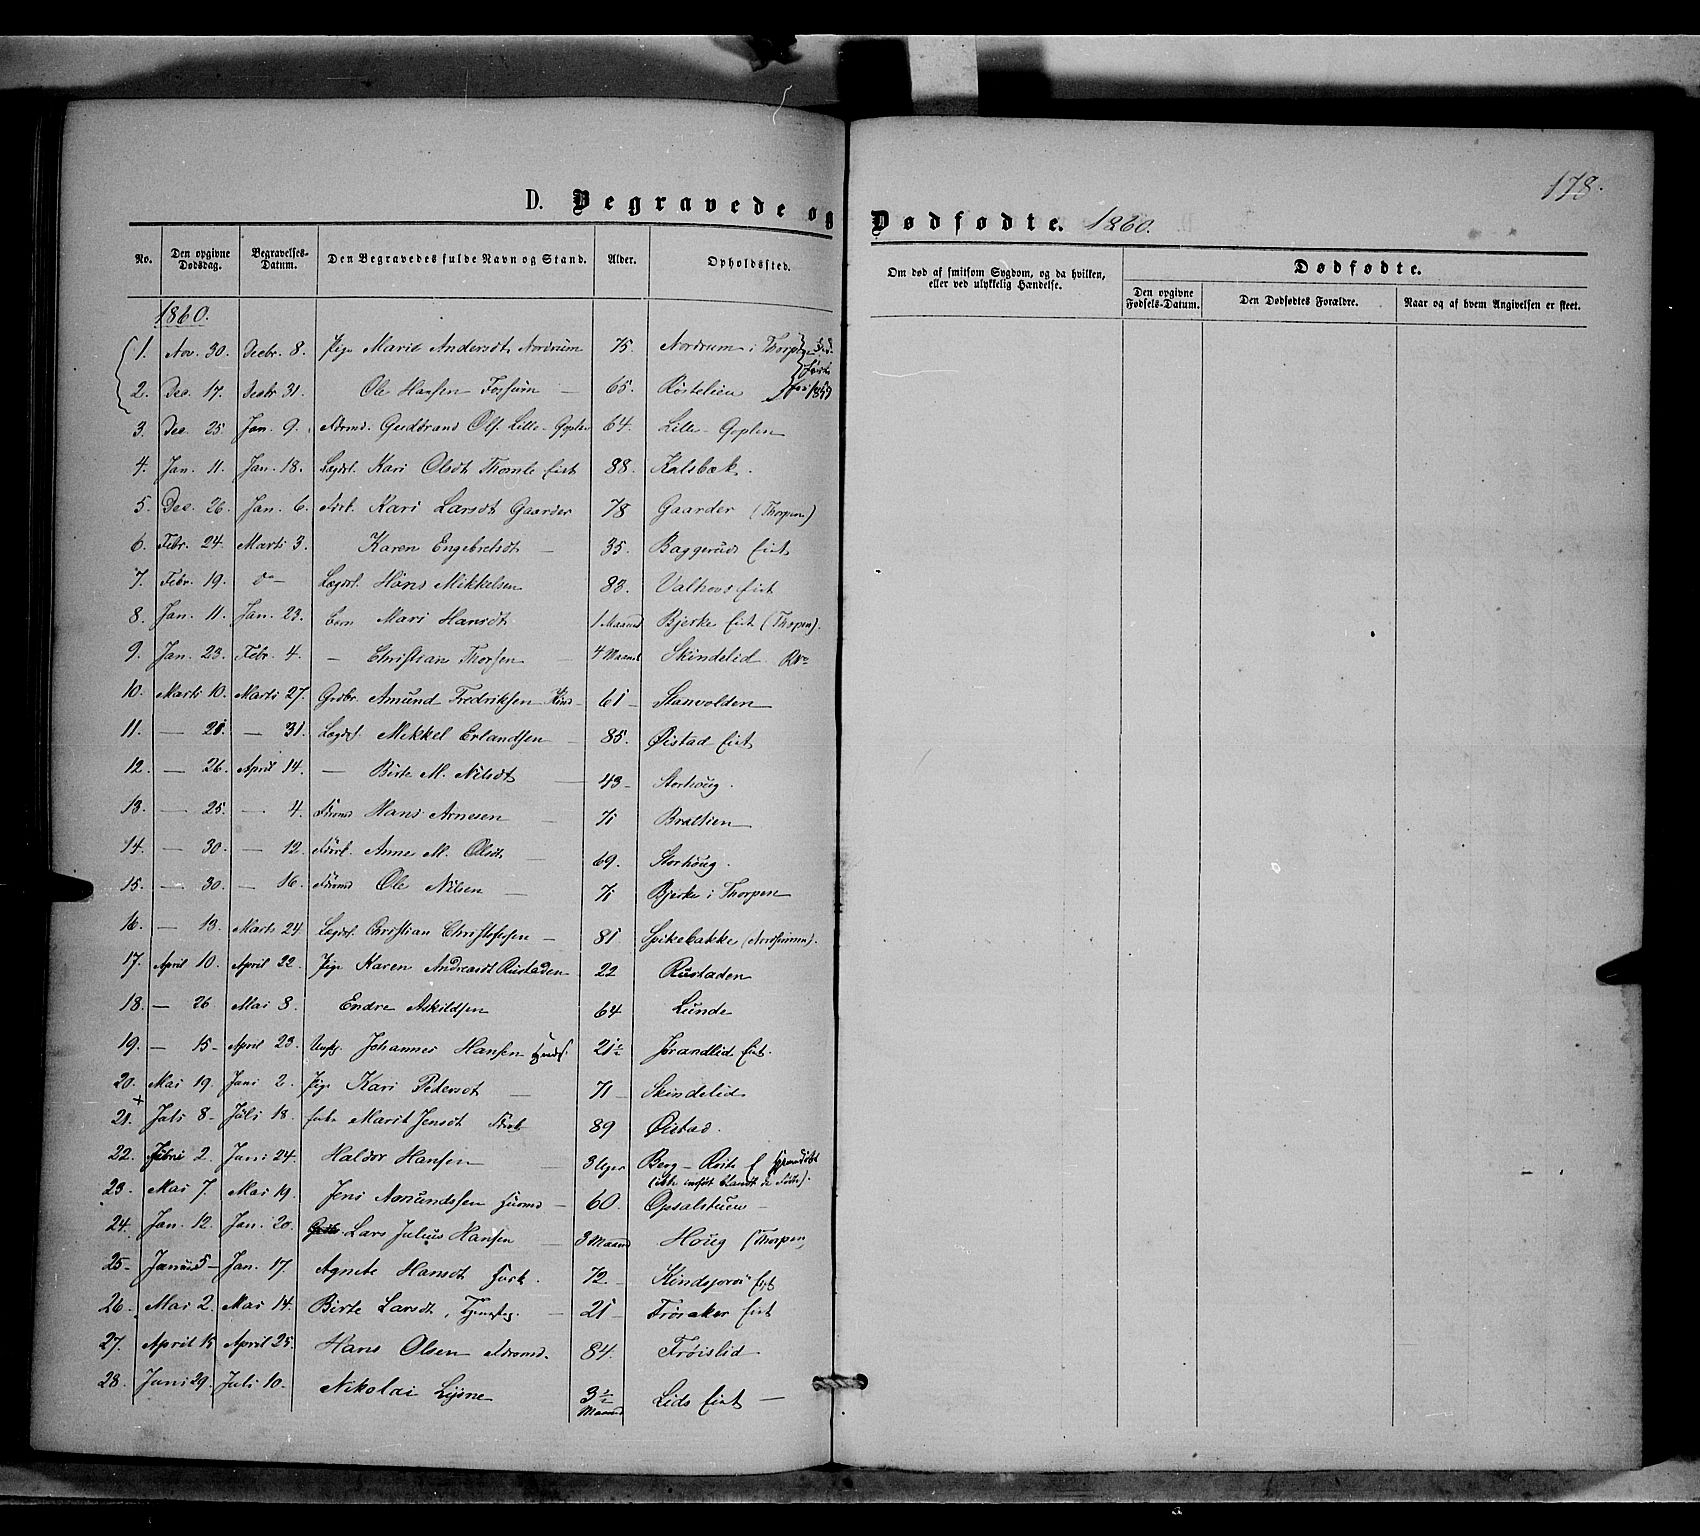 178.
D. Begravede og Dødfødte. 1860.
No. Den opgivne Dødsdag. Begravelses-Datum. Den Begravedes fulde Navn og Stand. Alder. Opholdssted. Om død af smitsom Sygdom, og da hvilken, eller ved ulykkelig Hændelse. Dødfødte.
Den opgivne Fødsels-Datum. Den Dødfødtes Forældre. Naar og af hvem Angivelsen er skeet.
1860.
1. Nov. 30. Decbr. 8. Pige Marit Andersdt. Nordrum 75. Nordrum i Thorpen
2. Dec. 17. Decbr 31. Ole Hansen Fossum — 65. Røstelien for 1859
3. Dec. 25 Jan. 9. Gudbrand Ols. Lille-Goplen 64. Lille-Goplen
4. Jan. 11. Jan. 18. Lægdsl. Kari Olsdt Thomle Eiet 88. Kalsbæk.
5. Dec. 26. Jan. 6. Kari Larsdt Gaarder 78 Gaarder (Thorpen)
6. Febr. 24. Marts 3. Karen Engebretsdt — 35. Baggeruds Eiet
7. Febr. 19. do — Lægdsl. Hans Mikkelsen 83. Valhovs Eiet
8. Jan. 11. Jan. 23. Barn Mari Hansdt 1 Maaned Bjerke Eiet (Thorpen).
9. Jan. 23. Febr. 4. — Christian Thorsen — 4 Maaned Skindelid
10. Marts 10. Marts 27. Grdbr. Amund Fredriksen 61 — Stenvolden
11. — 21. — 31. Lægdsl. Mikkel Erlandsen — 85. Øistad Eiet
12. — 26. April 14. — Birte M. Nilsdt — 43 — Storhoug.
13. — 25. — 4. Hans Arnesen — 71 Bratlien
14. — 30. — 12. Anne M. Olsdt — 69. Storhoug.
15. — 30. — 16. Ole Nilsen — 71 Bjerke i Thorpen
16. — 13. Marts 24. Lægdsl. Christian Christophersen — 81. Spikebakke (Nordsinnen).
17. April 10. April 22. Pige Karen Andreasdt Rustaden 22 Rustaden
18. — 26 Mai 8. Endre Askildsen 64 Lunde
19. — 15 — April 23. Ungk. Johannes Hansen 21 1/2 Jørandlid Eiet.
20. Mai 19. Juni 2. Pige Kari Pedersdt — 71 — Skindelid
21. Juli 8 — Juli 18. Marit Jensdt 89 Øistad.
22. Juni 2. Juni 24. Haldor Hansen — 3 Uger Berg — Roste
(ikke indført blandt de Fødte).
23. Mai 7. Mai 19. Jens Amundssen Huusmd — 60. Opsalstuen —
24. Jan. 12. Jan. 20. Lars Julius Hansen — 3 Maaned Houg (Thorpen)
25 — Januar 5 — Jan. 17. Agnete Hansdt 72. Eiet
26. Mai 2. Mai 14. Birte Larsdt, — 21 — Frøsaker Eiet
27. April 15 April 25. Hans Olsen 84. Frøislid
28. Juni 29. Juli 10. Nikolai Lysne 3 1/2 Maaned Lids Eiet —